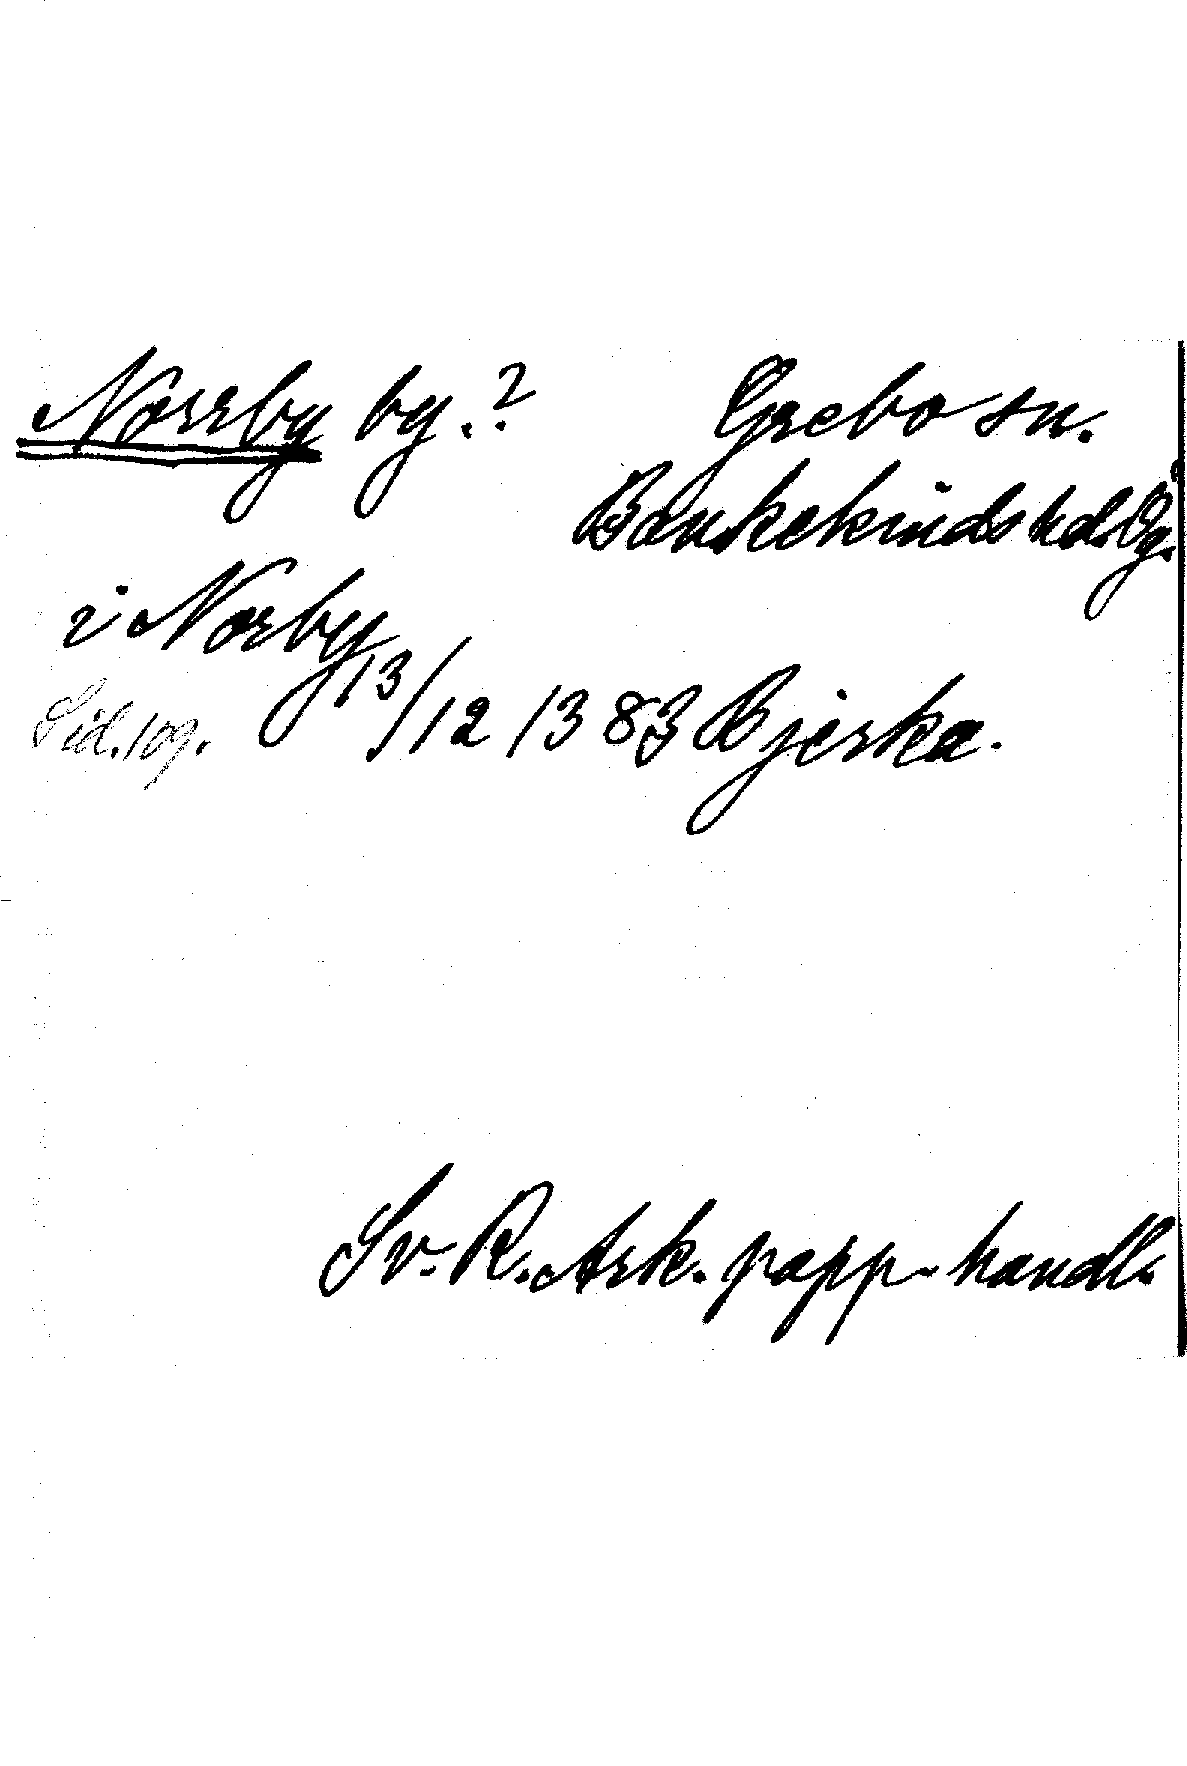 Norrby by.? Grebo sn.
Bankekinds hd. Ög.
i Norby 13/12 1383 Bjerka.
Sid. 109.
Sv. R. Ark. papp. handl.